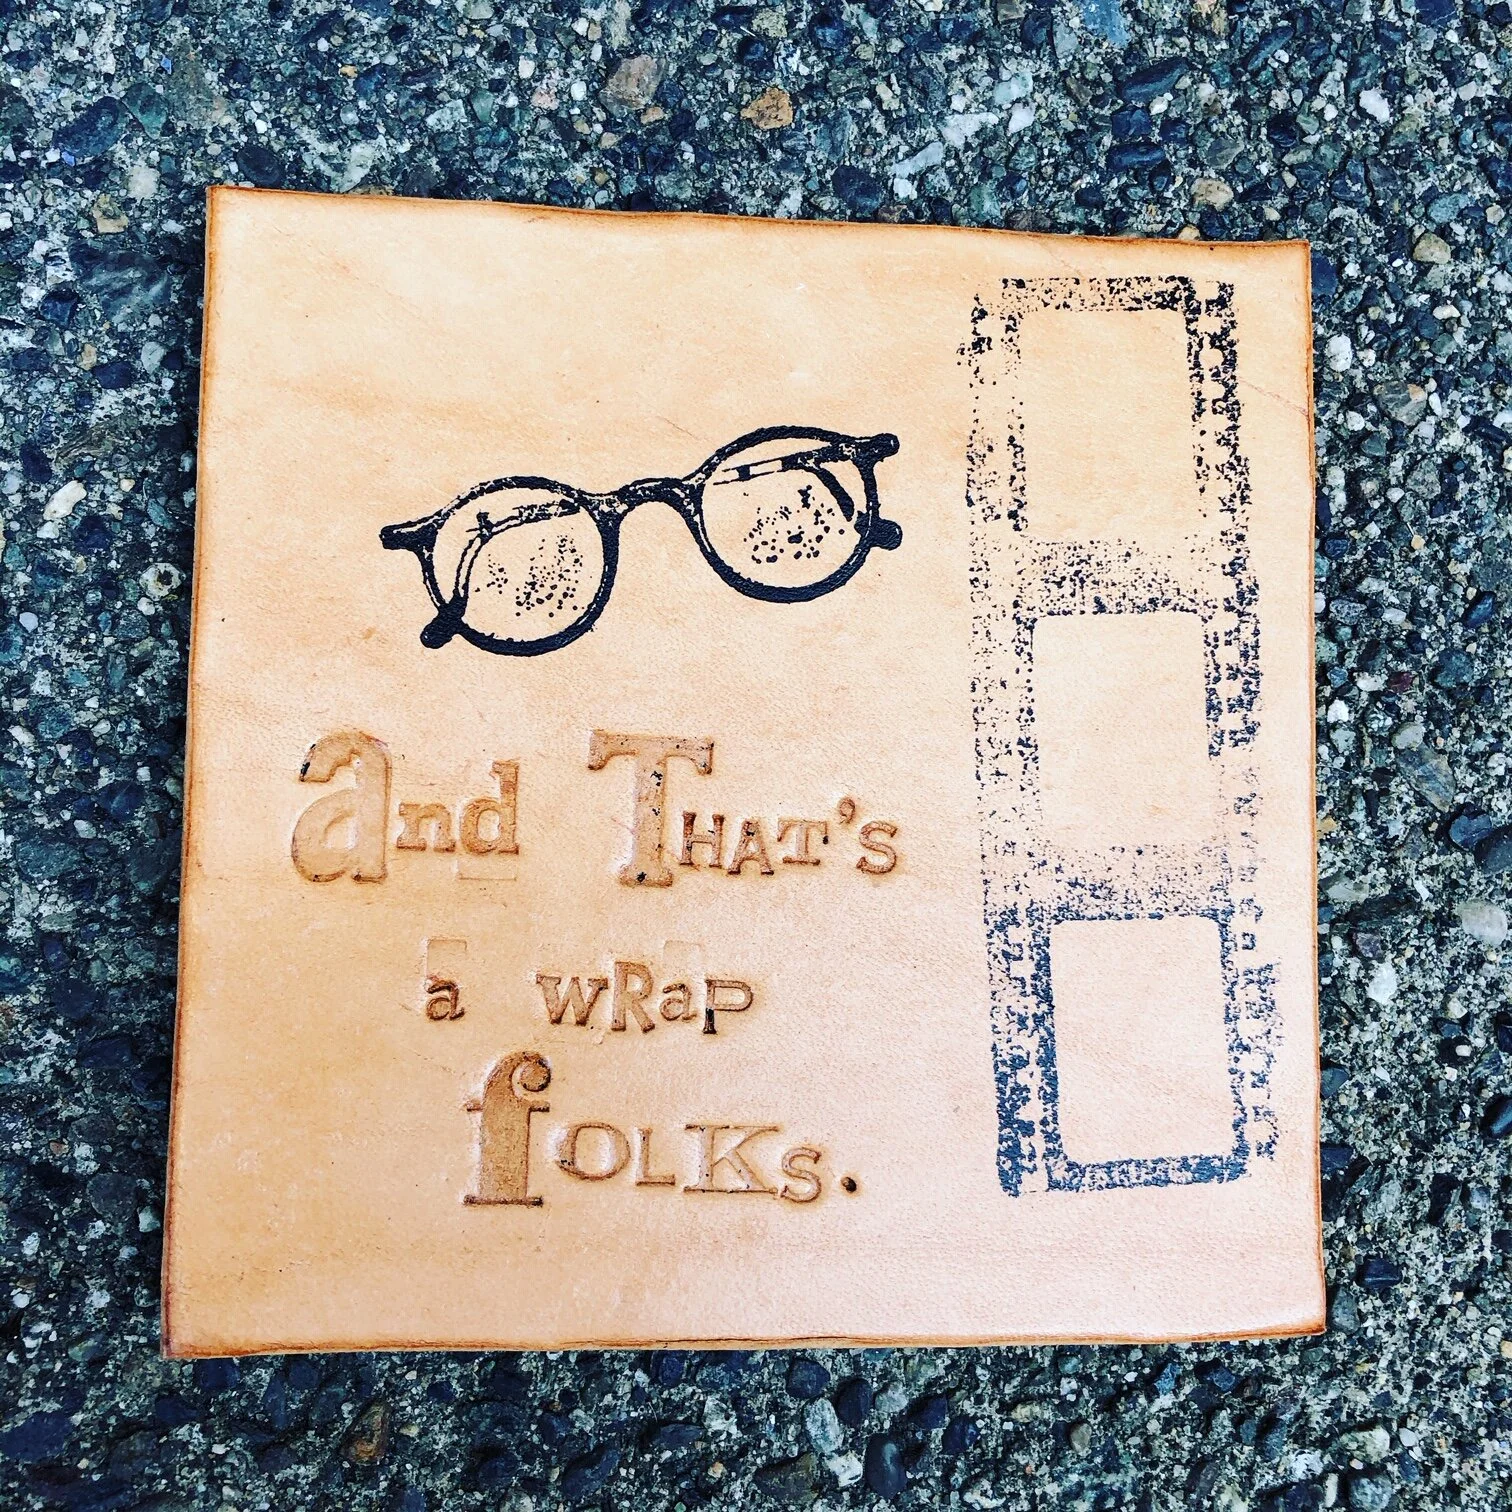 and THAT'S
a wRaP
fOLKS.